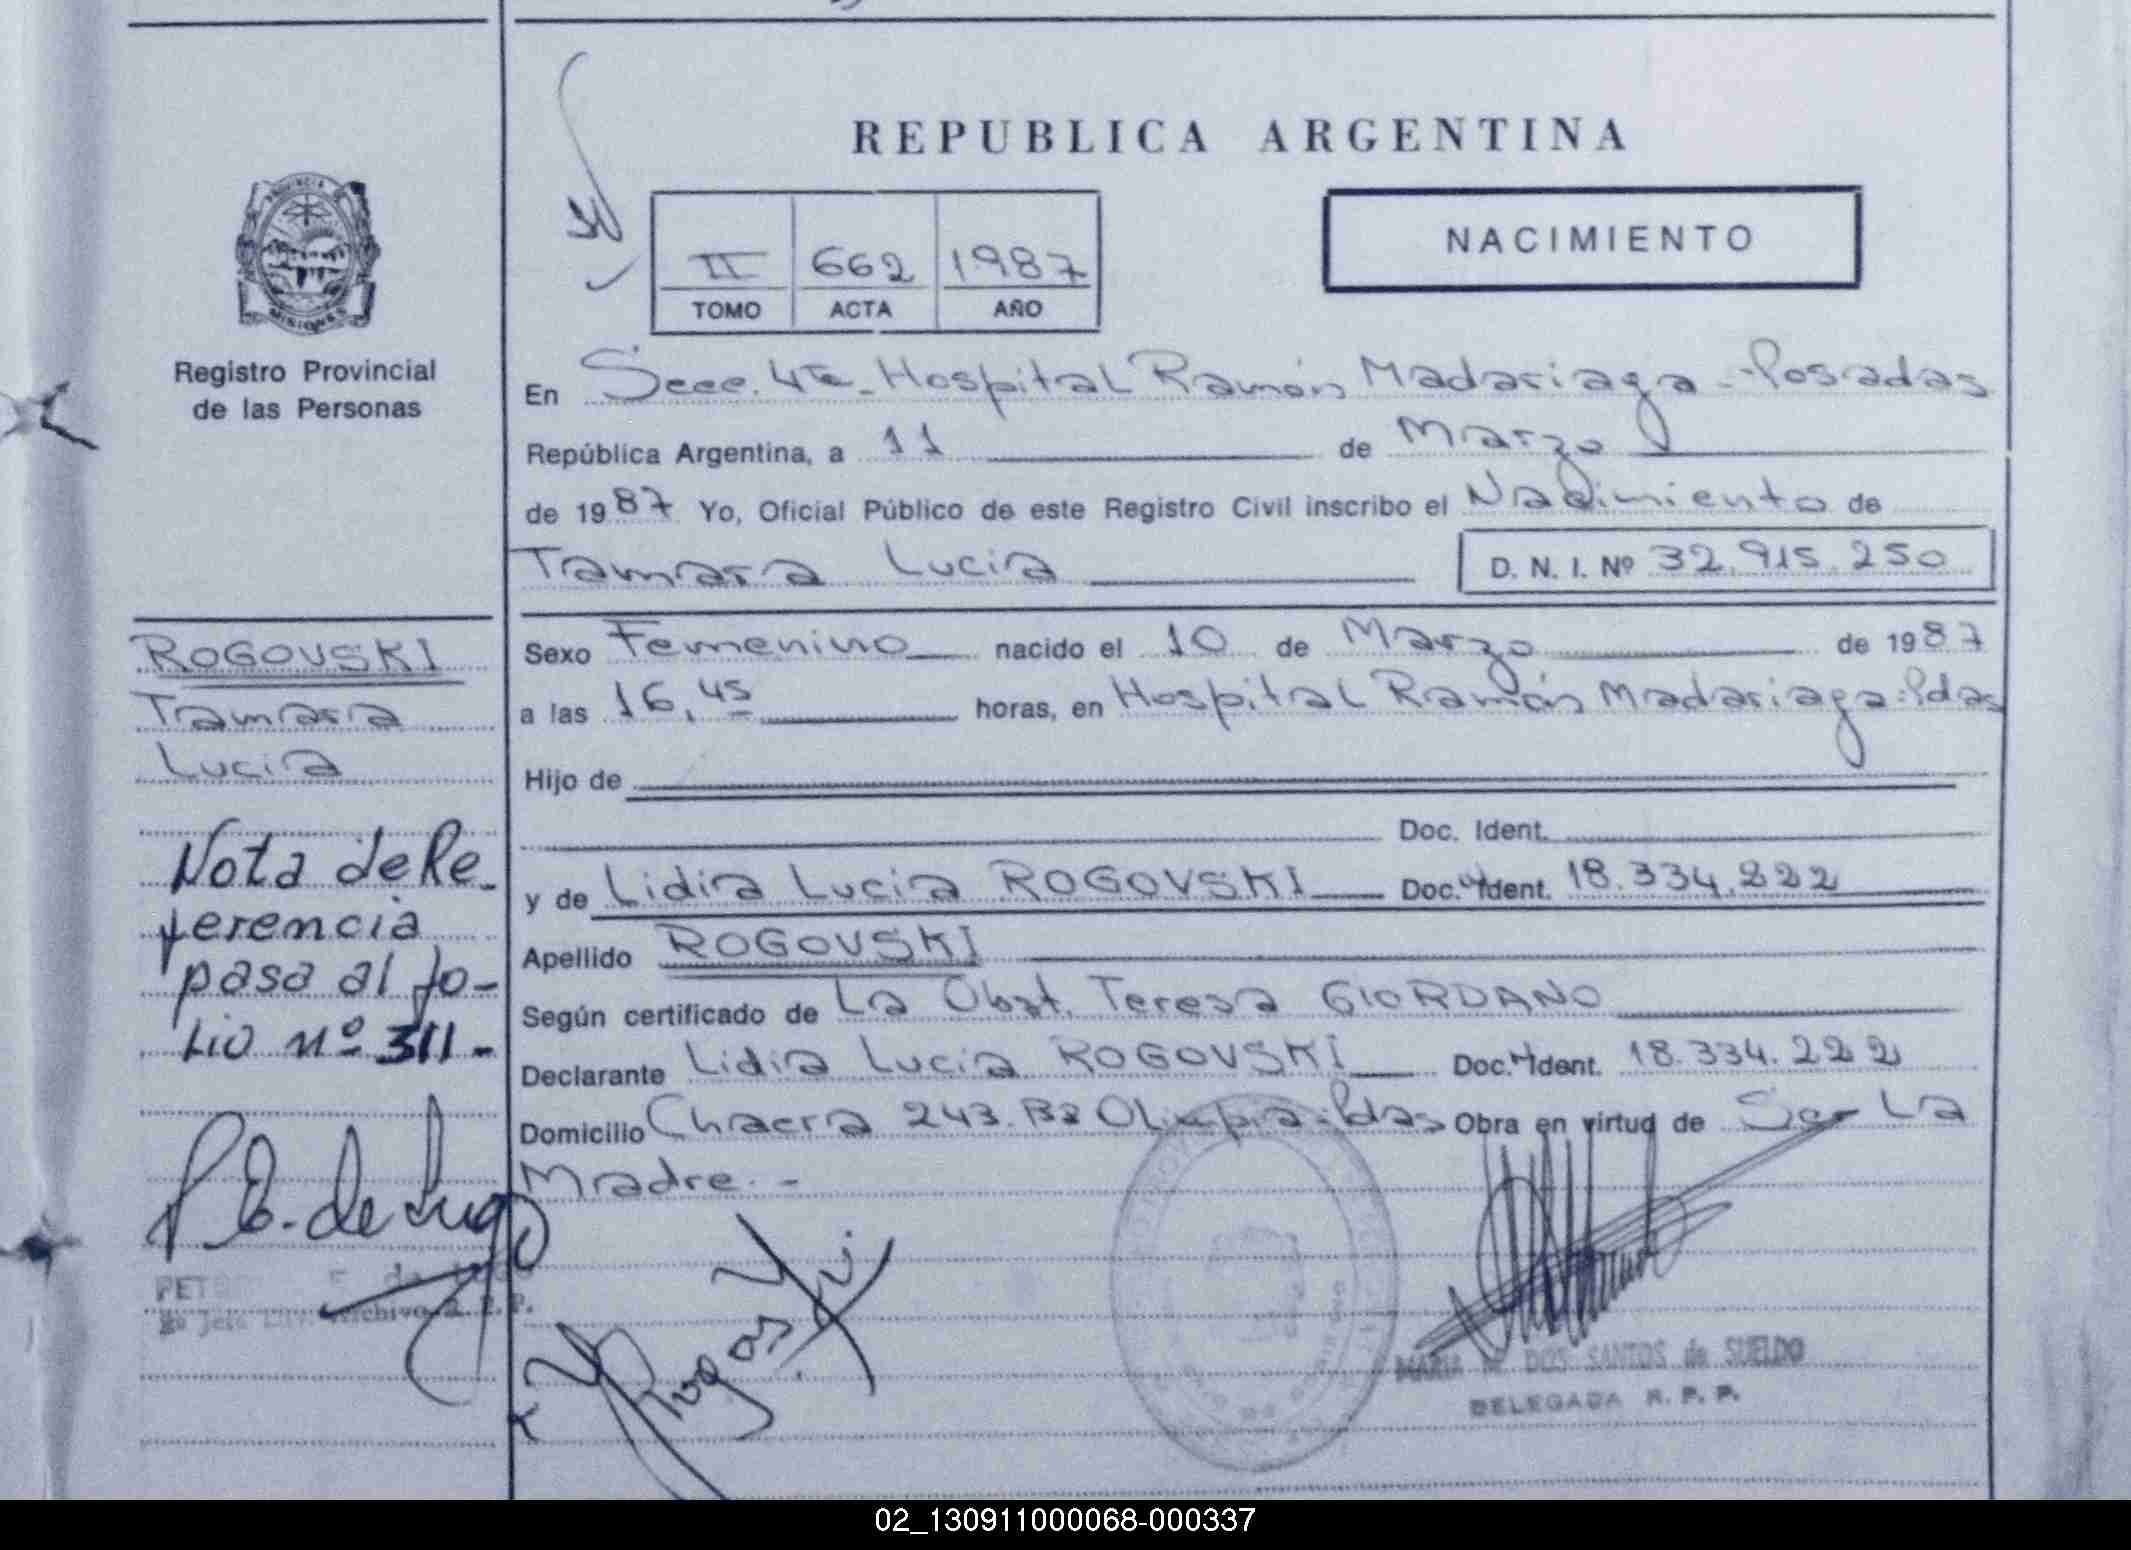 REPUBLICA ARGENTINA
NACIMIENTO
II 662 1987
TOMO ACTA AÑO
PROVINCIA
MISIONES
Registro Provincial
de las Personas
En Secc. 4ta - Hospital Ramón Madariaga - Posadas
República Argentina, a 11 de Marzo
de 1987 Yo, Oficial Público de este Registro Civil inscribo el Nacimiento de
Tamara Lucia D. N. I. Nº 32.915.250
ROGOVSKI
Tamara
Lucia
Sexo Femenino nacido el 10 de Marzo de 1987
a las 16,45 horas, en Hospital Ramón Madariaga - Pdas
Hijo de
Doc. Ident.
y de Lidia Lucia ROGOVSKI Doc. Ident. 18.334.222
Apellido ROGOVSKI
Según certificado de La Obst. Teresa GIORDANO
Declarante Lidia Lucia ROGOVSKI Doc. Ident. 18.334.222
Domicilio Chacra 243. Bº Olimpia - Pdas Obra en virtud de Ser La
Madre. -
Nota de Re-
ferencia
pasa al fo-
lio nº 311 -
P E. de Lugo
Rogovski
MARIA M. DOS SANTOS de SUELDO
DELEGADA R. P. P.
02_130911000068-000337